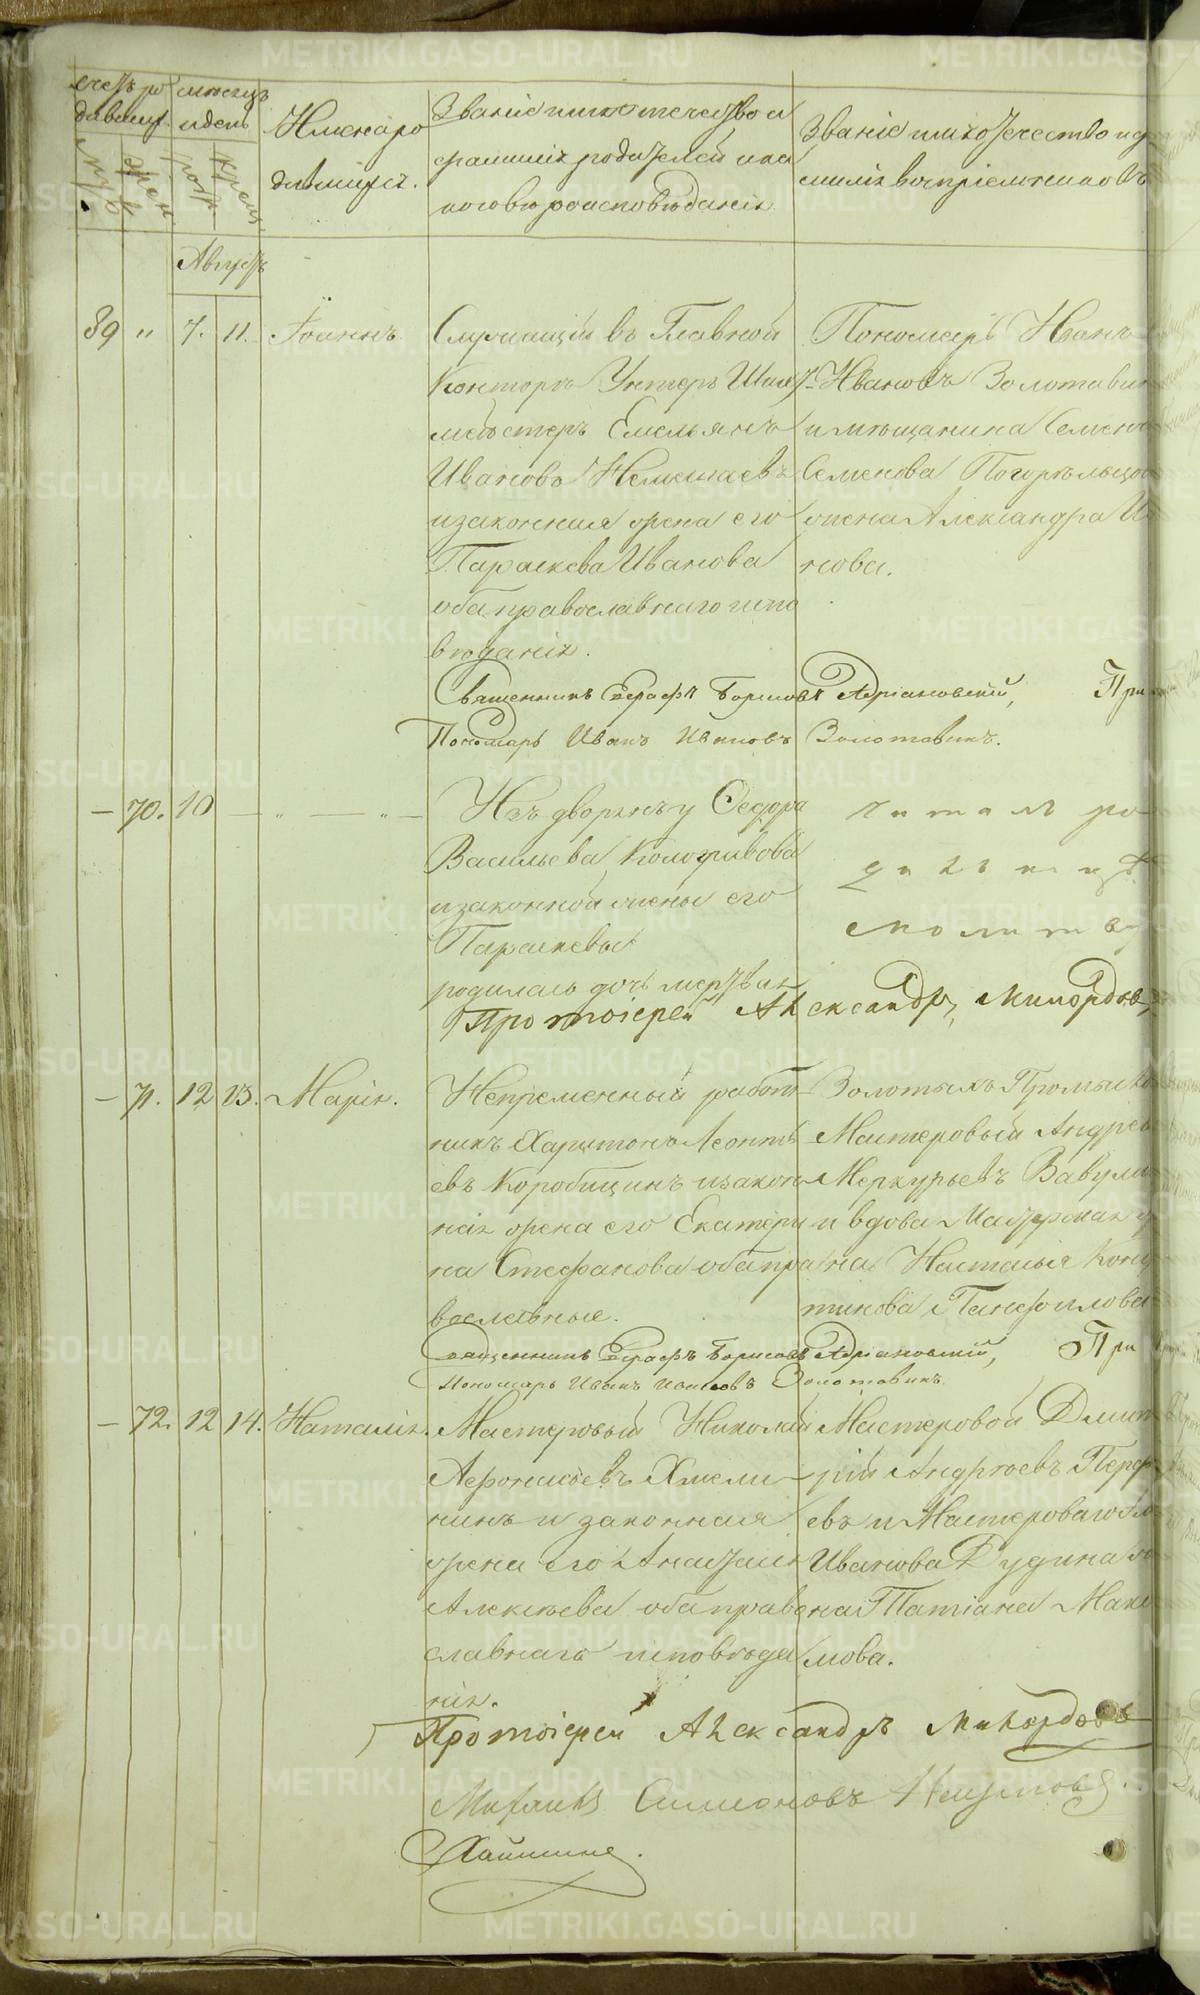 Счетъ ро
дившихся.
муж.
жен.
Месяцъ
и день
рож.
крещ.
Имена ро
дившихся.
Званіе имя отечество и
фамилія родителей и ка
кого вероисповѣданія
Званіе имя отечество и фа
милія воспріемниковъ
Августъ
89 " 7. 11. Іоаннъ.
Служащій въ Главной
Конторѣ Унтеръ Шихт
мейстеръ Емельянъ
Ивановъ
и законная жена его
Параскева Иванова
оба православнаго испо
вѣданія.
Пономарь Иванъ
Ивановъ Золотавин
и мѣщанина Семена
Семенова Погорѣльцов
жена Александра Ив
нова.
Священникъ Борисовъ Адріановскій, При
Пономарь Иванъ Ивановъ Золотавинъ.
— 70. 10 — " — " —
Изъ дворянъ у Федора
Васильева Кологривова
и законной жены его
Параскевы
родилась дочь мертвая
Читалъ ро
молитву
Протоіерей Александръ
— 71. 12 23. Марія.
Непременный работ
никъ Харитонъ Леонть
евъ Коробицинъ и закон
ная жена его Екатери
на Стефанова оба пра
вославные.
Золотыхъ Промысло
Мастеровый Андрей
Меркурьевъ Вавули
и вдова Мастерская
на Наталья Кон
тинова Панфилова
Священникъ Борисовъ Адріановскій, При
Пономарь Иванъ Ивановъ Золотавинъ
— 72. 12 14. Наталія.
Мастеровый Николай
Афонасьевъ Хмели
нинъ и законная
жена его Анастасія
Алексѣева оба право
славнаго исповѣда
нія.
Мастеровой Дмит
рій Андреевъ Перф
евъ и Мастероваго
Иванова Дудина же
на Татіана Макси
мова.
Протоіерей Александръ
Михаилъ Симеоновъ Наумовъ.
METRIKI.GASO-URAL.RU